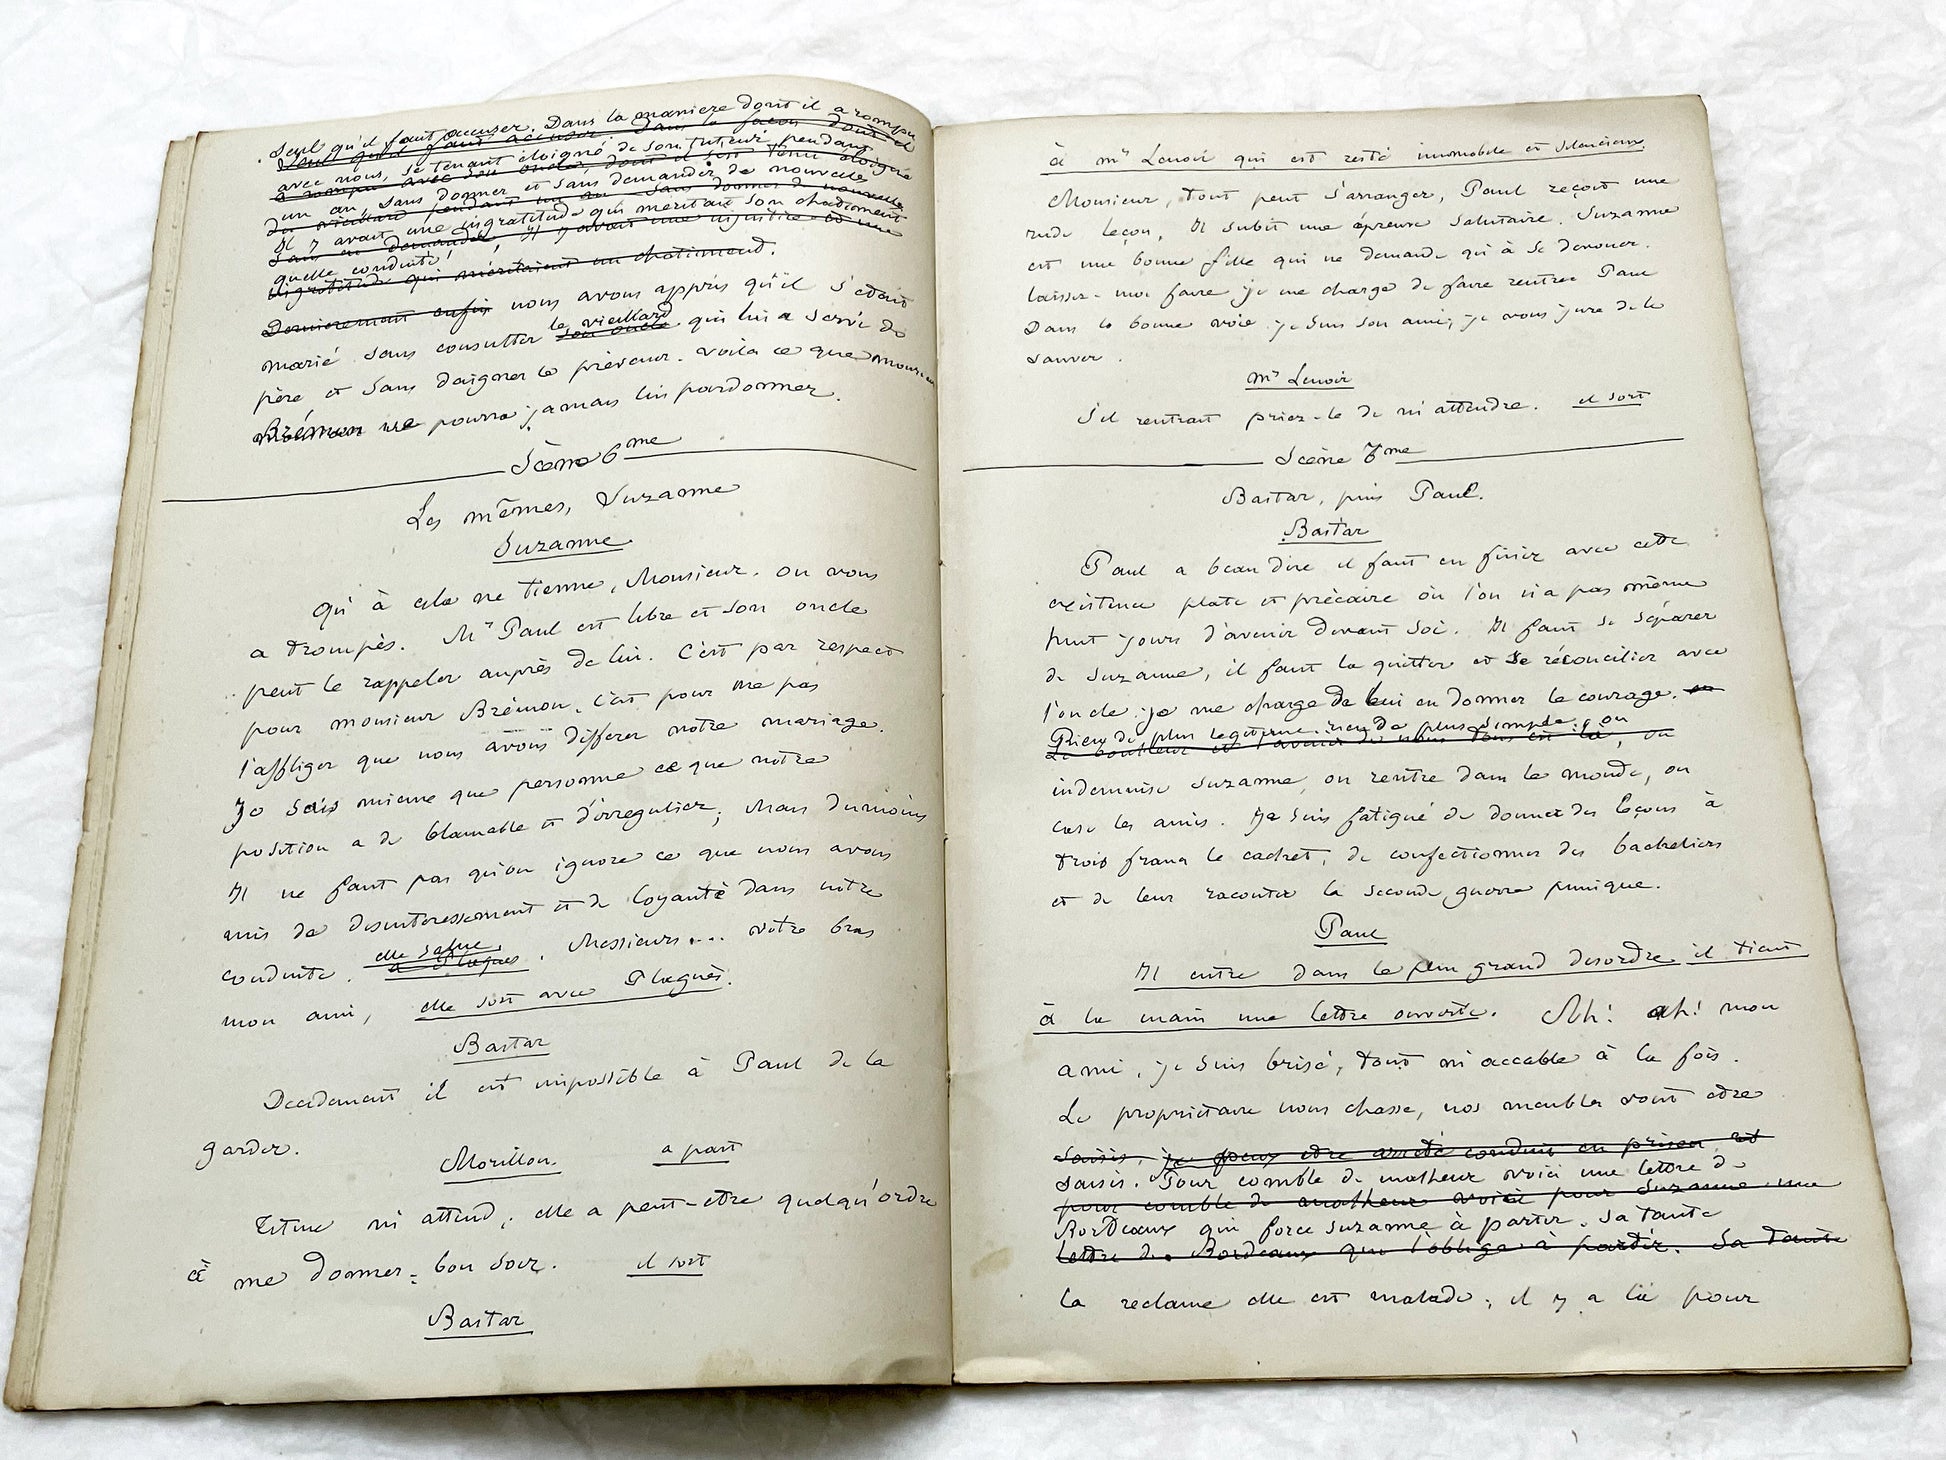 seul qu'il faut accuser. Dans la maniere dont il a rompu
seul qu'il faut accuser. Dans la facon dont il
avec nous, se tenant éloigné de son tuteur pendant
a rompu avec son oncle, dont il s'est tenu éloigné
un an, sans donner et sans demander de nouvelles
du vieillard pendant un an sans donner de nouvelles
Il y avait une ingratitude qui meritait son chatiment
sans en demander, Il y avait une injustice et une
quelle conduite!
ingratitude qui méritaient un chatiment.
Dernierement enfin nous avons appris qu'il s'etait
marié sans consulter le vieillard qui lui a servi de
son oncle
père et sans daigner le prévenir. voilà ce que monsieur
Brémon ne pourra jamais lui pardonner.
Scène 6me
Les mêmes, Suzanne
Suzanne
Qu'à cela ne tienne, Monsieur. on vous
a trompés. Mr Paul est libre et son oncle
peut le rappeler auprès de lui. C'est par respect
pour monsieur Brémon, c'est pour ne pas
l'affliger que nous avons differer notre mariage.
Je sais mieux que personne ce que notre
position a de blamable et d'irregulier; Mais du moins
Il ne faut pas qu'on ignore ce que nous avons
mis de desinteressement et de loyauté dans notre
conduite. elle salue. Messieurs... votre bras
a Plugues
mon ami, elle sort avec Plugués.
Bastar
Decidement il est impossible à Paul de la
garder.
Morillon. a part
Titine m'attend; elle a peut-etre quelqu'ordre
à me donner; bon soir. il sort
Bastar
à mr Lenoir qui est resté immobile et silencieux
Monsieur, tout peut s'arranger, Paul reçoit une
rude leçon, Il subit une épreuve salutaire. Suzanne
est une bonne fille qui ne demande qu'à se devouer.
laissez-moi faire je me charge de faire rentrer Paul
Dans la bonne voie je suis son ami, je vous jure de le
sauver.
mr Lenoir
S'il rentrait priez-le de m'attendre. il sort
Scène 7me
Bastar, puis Paul.
Bastar
Paul a beau dire il faut en finir avec cette
existence plate et précaire où l'on n'a pas même
huit jours d'avenir devant soi. Il faut se séparer
de Suzanne, il faut la quitter et se réconcilier avec
l'oncle. je me charge de lui en donner le courage. en
Rien de plus legitime rien de plus simple; on
Le bonheur et l'avenir de nous tous est là, on
indemnise Suzanne, on rentre dans le monde, on
case les amis. Je suis fatigué de donner des leçons à
trois francs le cachet, de confectionner des bacheliers
et de leur raconter la seconde guerre punique.
Paul
Il entre dans le plus grand desordre il tient
à la main une lettre ouverte. Ah! ah! mon
ami, je suis brisé, tout m'accable à la fois.
Le proprietaire nous chasse, nos meubles vont etre
saisis, je peux etre arreté conduit en prison et
saisis. Pour comble de malheur voici une lettre de
pour comble de malheur voici pour Suzanne une
Bordeaux qui force Suzanne à partir. Sa tante
lettre de Bordeaux qui l'oblige à partir. Sa tante
la reclame elle est malade; il y a là pour